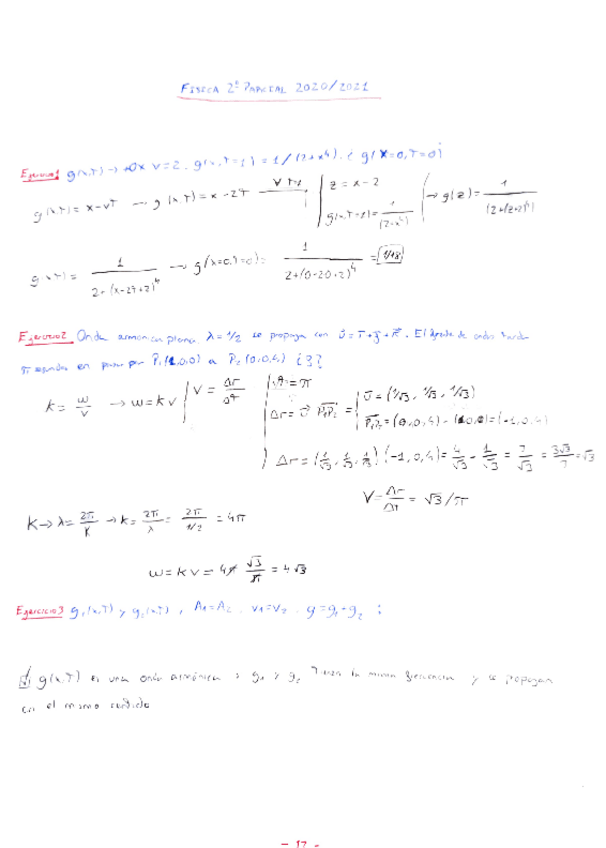 FISICA 2º PARCIAL 2020/2021
Ejercicio1 g(x,T) → +Ox v=2. g(x,T=1) = 1/(2+x⁴). ¿ g(x=0,T=0)
g(x,T) = x-vT → g(x,T) = x-2T z = x-2 → g(z) = 1/(2+(z+2)⁴)
g(x,T=1) = 1/(2+x⁴)
g(x,T) = 1/(2+(x-2T+2)⁴) → g(x=0,T=0) = 1/(2+(0-2·0+2)⁴) = 1/18
Ejercicio2 Onda armónica plana λ = 1/2 se propaga con
π segundos en pasar por P₁(1,0,0) a P₂(0,0,4) ¿
K = ω/v → ω = kv V = Δr/ΔT = π
Δr = P₁P₂ = (1/√3, 1/√3, 1/√3)
P₁P₂ = (0,0,4) - (1,0,0) = (-1,0,4)
Δr = (1/√3, 1/√3, 1/√3) (-1,0,4) = 4/√3 - 1/√3 = = √3
V = Δr/ΔT = √3/π
K → λ = 2π/K → k = 2π/λ = 2π/1/2 = 4π
ω = kv = 4π √3/π = 4√3
Ejercicio3 g₁(x,T) y g₂(x,T), A₁=A₂. v₁=v₂. y = g₁+g₂ :
g(x,T) es una onda armónica g₁ y g₂ Tienen la misma frecuencia y se propagan
en el mismo sentido
- 17 -